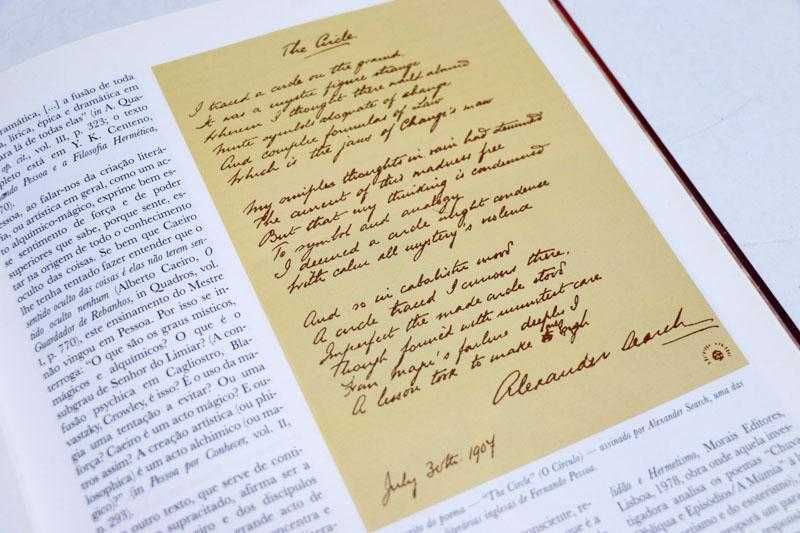 ramática, [...] a fusão de toda
a, lírica, épica e dramática em
ara lá de todas elas" (in A. Qua-
op. cit., vol. III, p. 323; o texto
pleto está em Y. K. Centeno,
ando Pessoa e a Filosofia Hermética,
70).
ssoa, ao falar-nos da criação literá-
ia, ou artística em geral, como um ac-
to alquímico-mágico, exprime bem es-
se sentimento de força e de poder
superiores que sabe, porque sente, es-
tar na origem de todo o conhecimento
oculto das coisas. Se bem que Caeiro
lhe tenha tentado fazer entender que o
sentido oculto das coisas é elas não terem sen-
tido oculto nenhum (Alberto Caeiro, O
Guardador de Rebanhos, in Quadros, vol.
I, p. 770), este ensinamento do Mestre
não vingou em Pessoa. Por isso se in-
terroga: "O que são os graus místicos,
mágicos e alquímicos? O que é o
subgrau de Senhor do Limiar? (A con-
fusão psychica em Cagliostro, Bla-
vastzky, Crowley, é isso? É o uso da ma-
gia uma tentação a evitar? Ou uma
força? Caeiro é um acto mágico? E ou-
tros assim? A creação artística (ou phi-
losophica) é um acto alchimico (ou ma-
gico)?" (in Pessoa por Conhecer, vol. II,
p. 293).
outro texto, que serve de conti-
supracitado, afirma ser a
eiro e dos discípulos
grande acto de
concentra e
The Circle
I traced a circle on the ground
It was a mystic figure strange
Wherein I thought there would abound
Mute symbols adequate of change
And complex formulas of Law
Which is the jaws of Change's maw
My simpler thoughts in vain had stemmed
The current of this madness free
But that my thinking is condemned
To symbol and analogy
I deemed a circle might condense
With calm all mystery's violence
And so in cabalistic mood
A circle traced I curious there;
Imperfect the made circle stood
Though formed with minutest care
From magic's failure deeply I
A lesson took to make me sigh
Alexander Search
July 30th 1907
do poema — "The Circle" (O Círculo) — assinado por Alexander Search, uma das
literárias inglesas de Fernando Pessoa.
onsciente, re-
que é a
lidão e Hermetismo, Morais Editores,
Lisboa, 1978, obra onde aquela inves-
tigadora analisa os poemas "Chuva